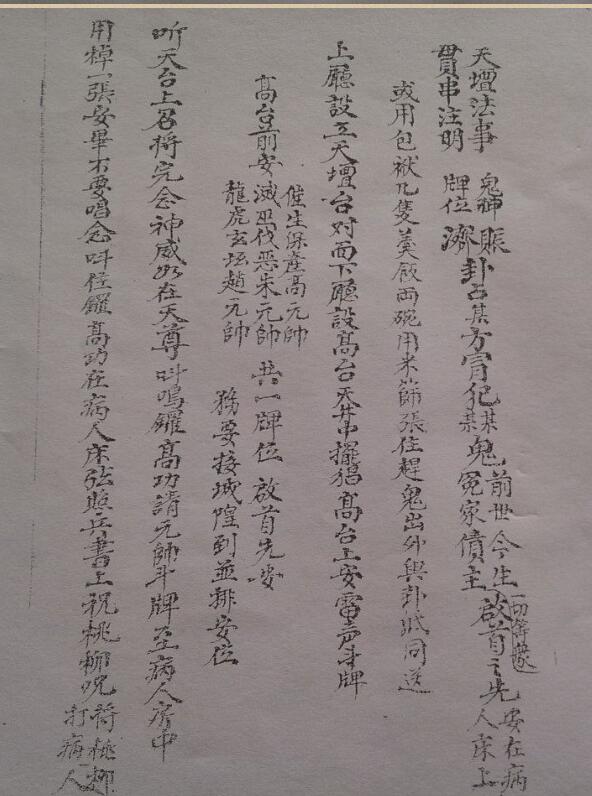 天壇法事
貫串注明
鬼神
牌位
賬
濟
卦占某方冐犯某某鬼前世今生冤家債主一切等發啟首之先安在病人床上
或用包袱几隻羮飯両碗用米篩張住趕鬼出外與卦狀同送
上廳設立天壇台对面下廳設髙台天井中擺猖髙台上安雷声斗牌
髙台前安
催生保產高元帥
滅巫伐惡朱元帥
龍虎玄坛趙元帥
共一牌位放首先安
務要接城隍到並排安位
听天台上召将完念神威如在天尊呌鳴鑼髙功請元帥斗牌至病人房中
用棹一張安畢不要唱念呌住鑼髙功在病人床弦照兵書上祝桃柳咒
符桃柳
打病人